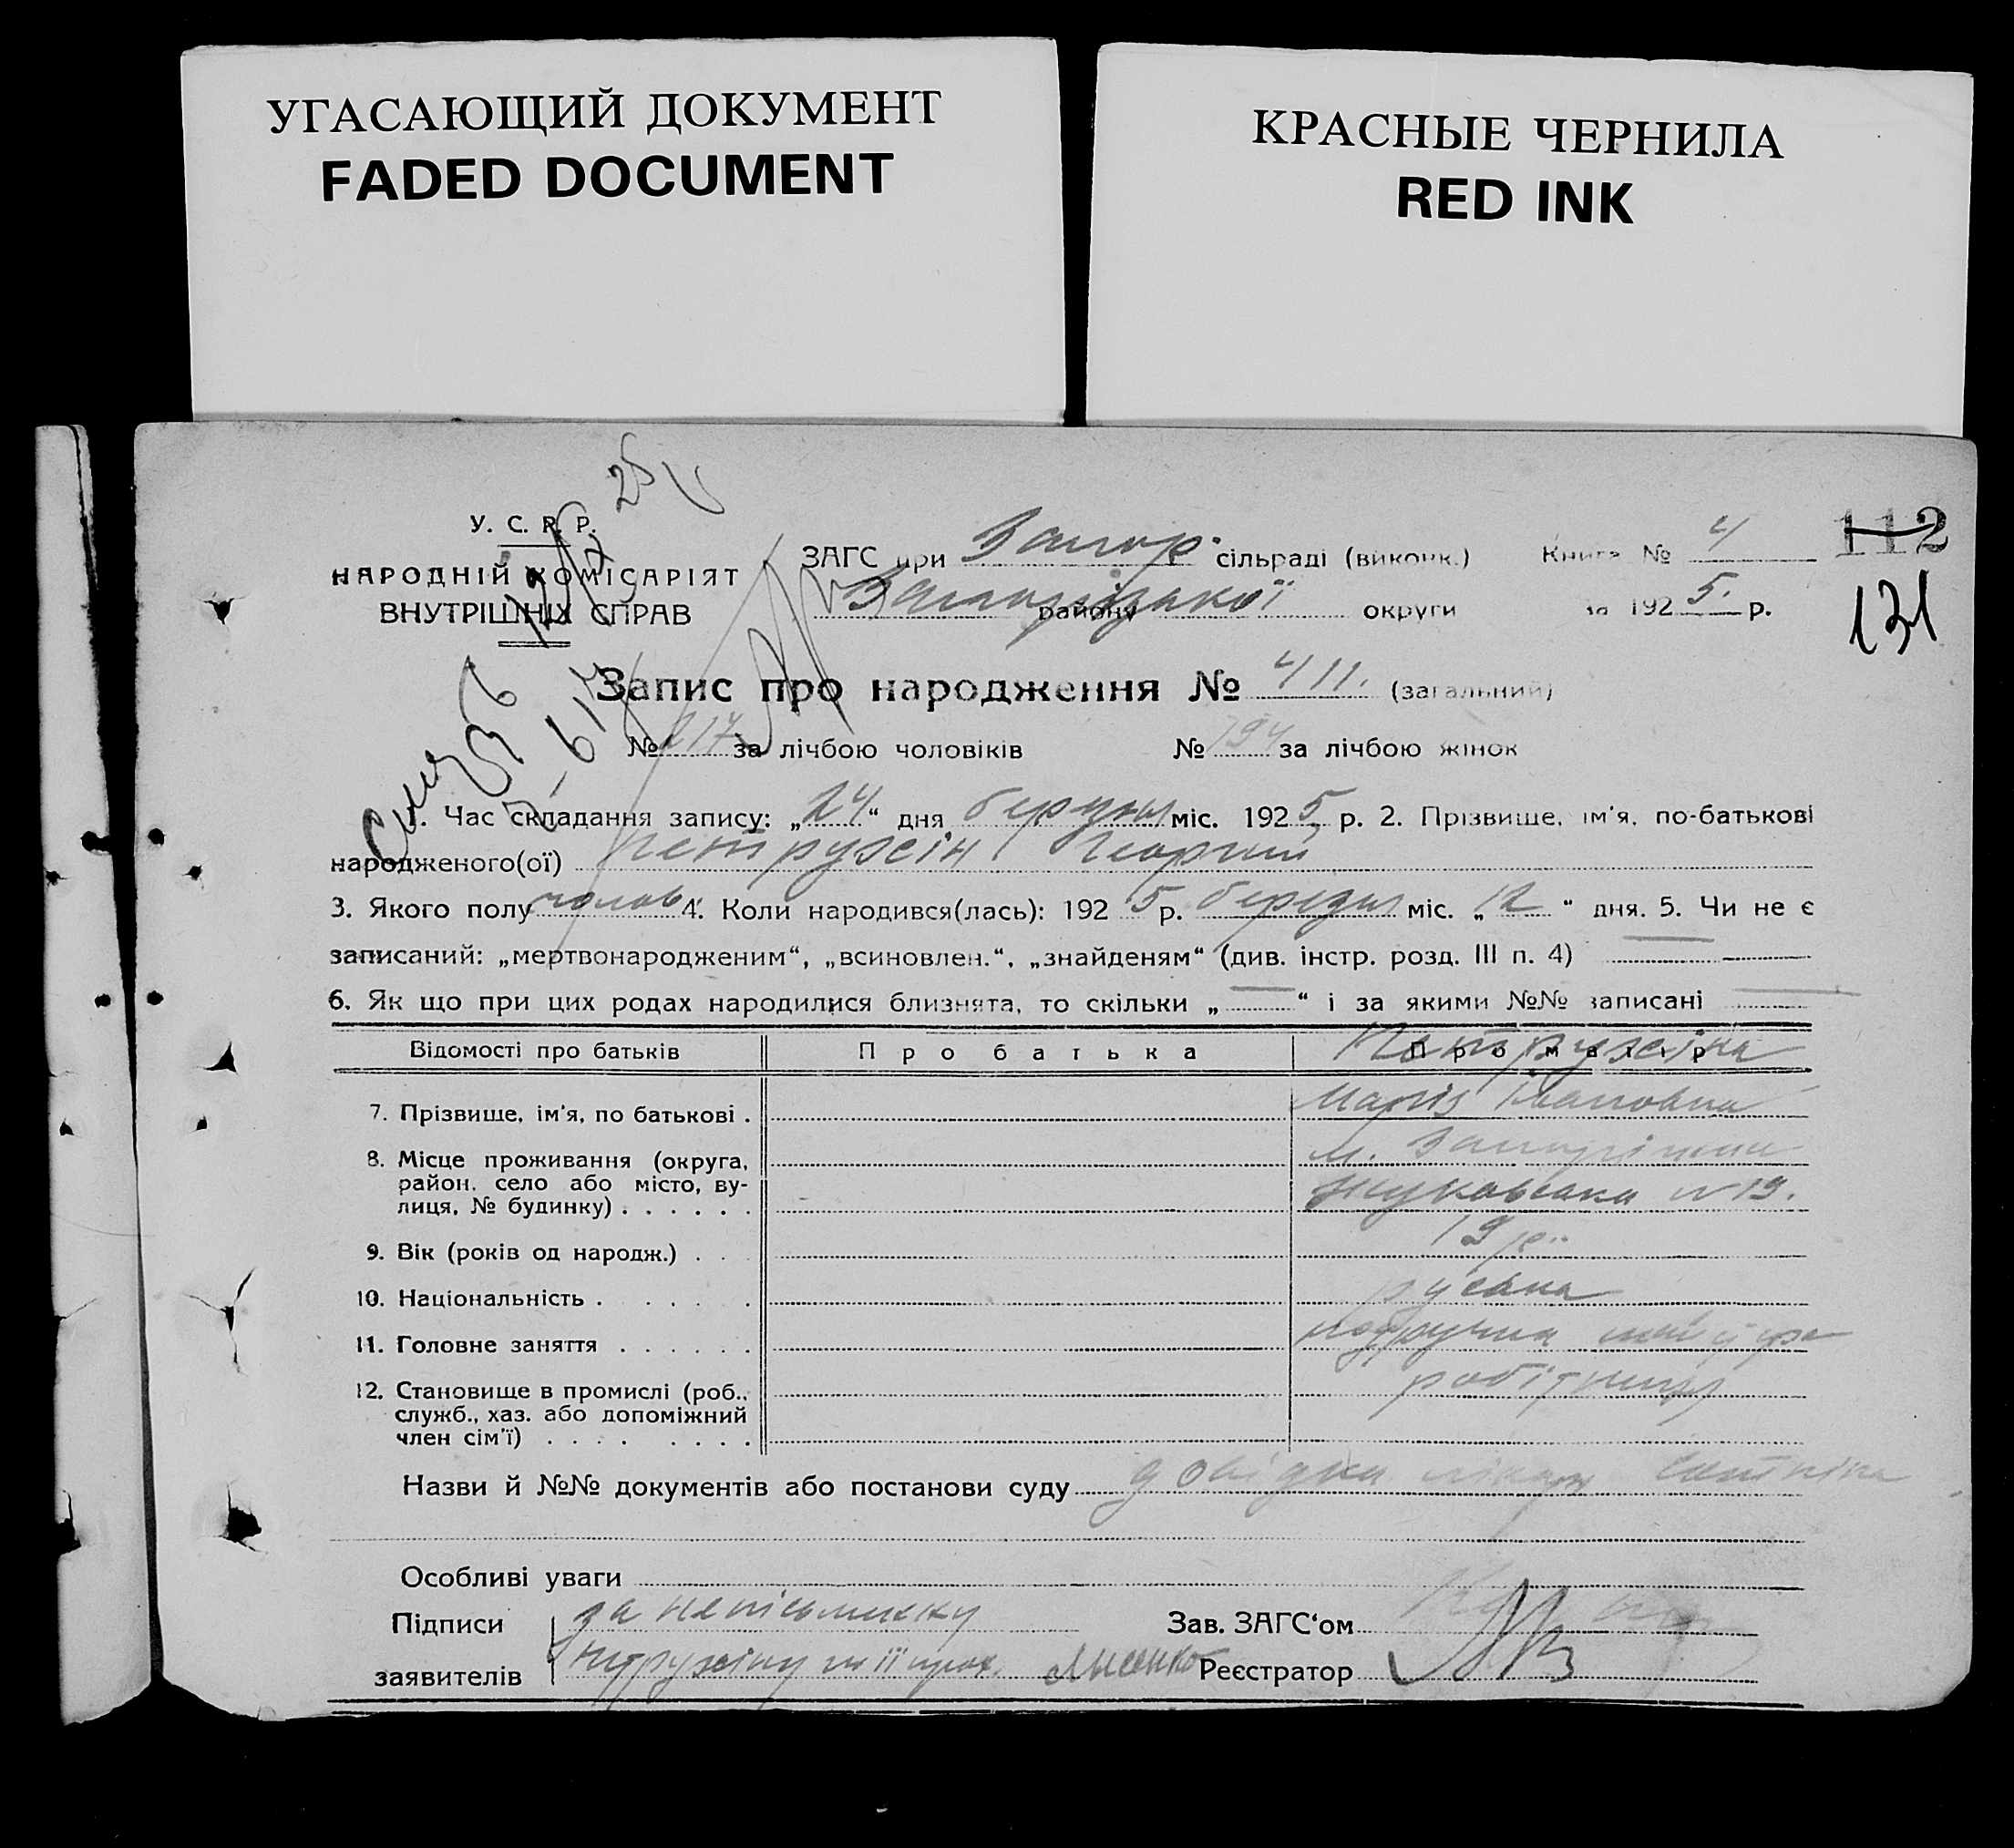 УГАСАЮЩИЙ ДОКУМЕНТ
FADED DOCUMENT
КРАСНЫЕ ЧЕРНИЛА
RED INK
У. С. Р. Р.
НАРОДНІЙ КОМІСАРІЯТ
ВНУТРІШНІХ СПРАВ
ЗАГС при Запор. сільраді (виконк.) Книга № 4
112
Запорізької району округи за 1925 р.
131
Запис про народження № 411. (загальний)
№ 217 за лічбою чоловіків № 194 за лічбою жінок
1. Час складання запису: „24“ дня березня міс. 1925 р. 2. Прізвище, ім'я, по-батькові
народженого(ої) Петрухін Георгий
3. Якого полу чолов. 4. Коли народився(лась): 1925 р. березня міс. „12“ дня. 5. Чи не є
записаний: „мертвонародженим“, „всиновлен.“, „знайденям“ (див. інстр. розд. III п. 4)
6. Як що при цих родах народилися близнята, то скільки „—“ і за якими №№ записані —
Відомості про батьків Про батька Про матір
Петрухіна
7. Прізвище, ім'я, по батькові . Марія Івановна
8. Місце проживання (округа, м. Запоріжжя
район, село або місто, ву-
лиця, № будинку) . . . . . . Жуковська № 19.
9. Вік (років од народж.) . . . 19 р.
10. Національність . . . . . . руська
11. Головне заняття . . . . . .
12. Становище в промислі (роб., робітниця
служб., хаз. або допоміжний
член сім'ї) . . . . . . . .
Назви й №№ документів або постанови суду довідка
Особливі уваги
Підписи за неписьменну Зав. ЗАГС'ом
заявителів Петрухіну Лисенко Реєстратор